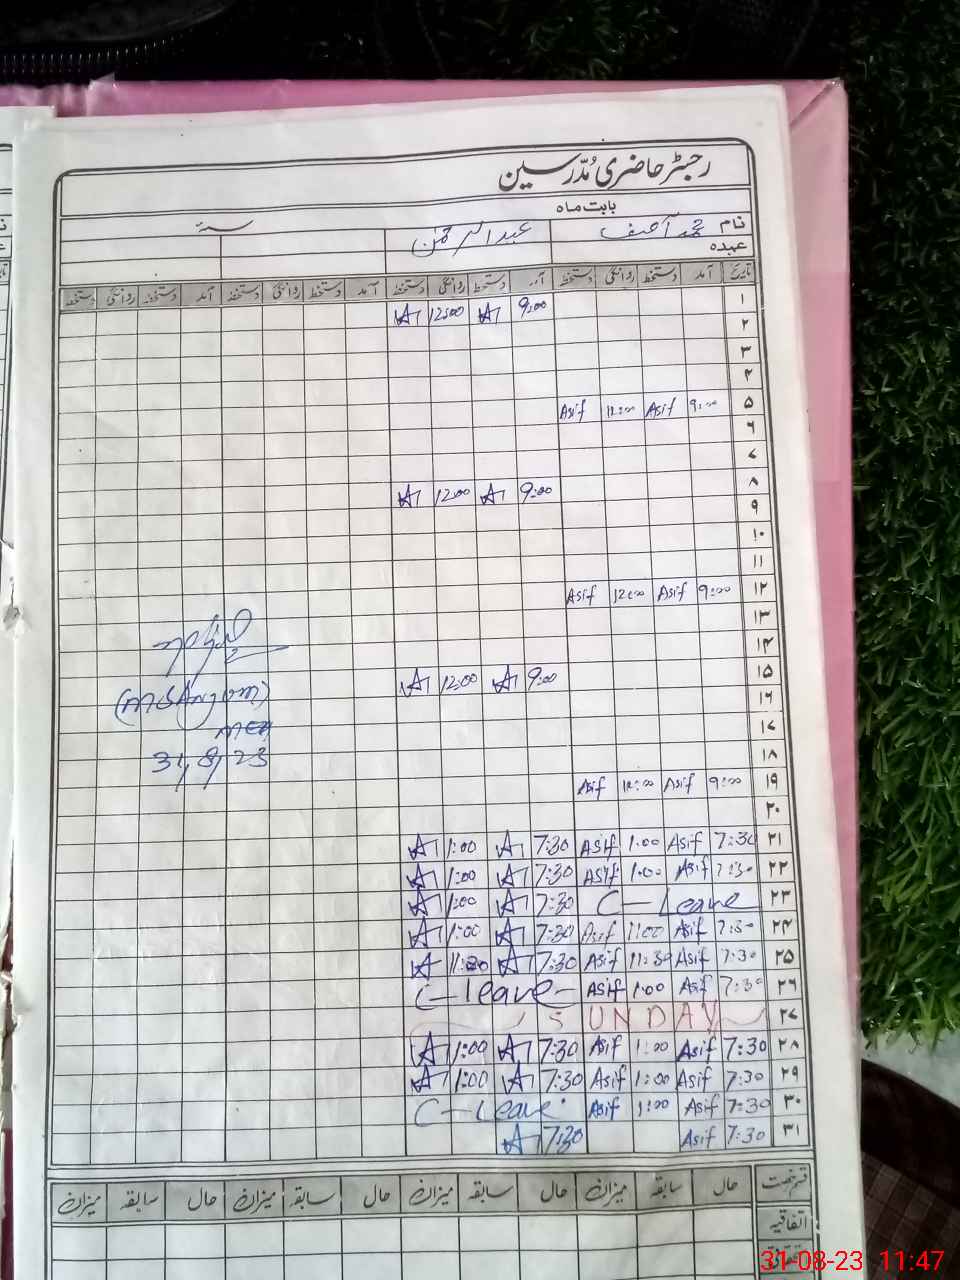 رجسٹر حاضری مُدّرسین
بابت ماہ
نام محمد آصف عبدالرحمٰن سنہ
عہدہ
تاریخ آمد دستخط روانگی دستخط آمد دستخط روانگی دستخط آمد دستخط روانگی دستخط آمد دستخط روانگی دستخط
۱ 9:00 12:00
۲
۳
۴
۵ 9:00 Asif 12:00 Asif
۶
۷
۸ 9:00 12:00
۹
۱۰
۱۱
۱۲ 9:00 Asif 12:00 Asif
۱۳
۱۴
۱۵ 9:00 12:00
۱۶
۱۷
۱۸
۱۹ 9:00 Asif 12:00 Asif
۲۰
۲۱ 7:30 Asif 1:00 Asif 7:30 1:00
۲۲ 7:30 Asif 1:00 Asif 7:30 1:00
۲۳ C-Leave 7:30 1:00
۲۴ 7:30 Asif 1:00 Asif 7:30 1:00
۲۵ 7:30 Asif 11:30 Asif 7:30 11:30
۲۶ 7:30 Asif 1:00 Asif C-Leave
۲۷ SUNDAY
۲۸ 7:30 Asif 1:00 Asif 7:30 1:00
۲۹ 7:30 Asif 1:00 Asif 7:30 1:00
۳۰ 7:30 Asif 1:00 Asif C-Leave
۳۱ 7:30 Asif 7:30
31/8/23
قسم رخصت حال سابقہ میزان حال سابقہ میزان حال سابقہ میزان حال سابقہ میزان
اتفاقیہ
31-08-23 11:47